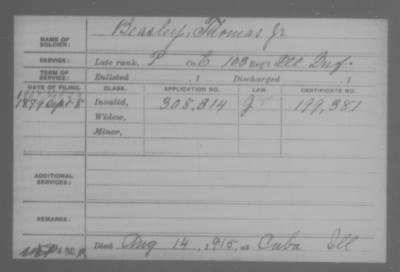 NAME OF SOLDIER: Beasley, Thomas Jr
SERVICE: Late rank, P Co. C 103 Reg't Ill Inf.
TERM OF SERVICE: Enlisted , 1 Discharged , 1
DATE OF FILING. CLASS. APPLICATION NO. LAW. CERTIFICATE NO.
1879 Sept 8 Invalid, 308,314 199,381
Widow,
Minor,
ADDITIONAL SERVICES:
REMARKS:
Died Aug 14, 1915, at Cuba Ill